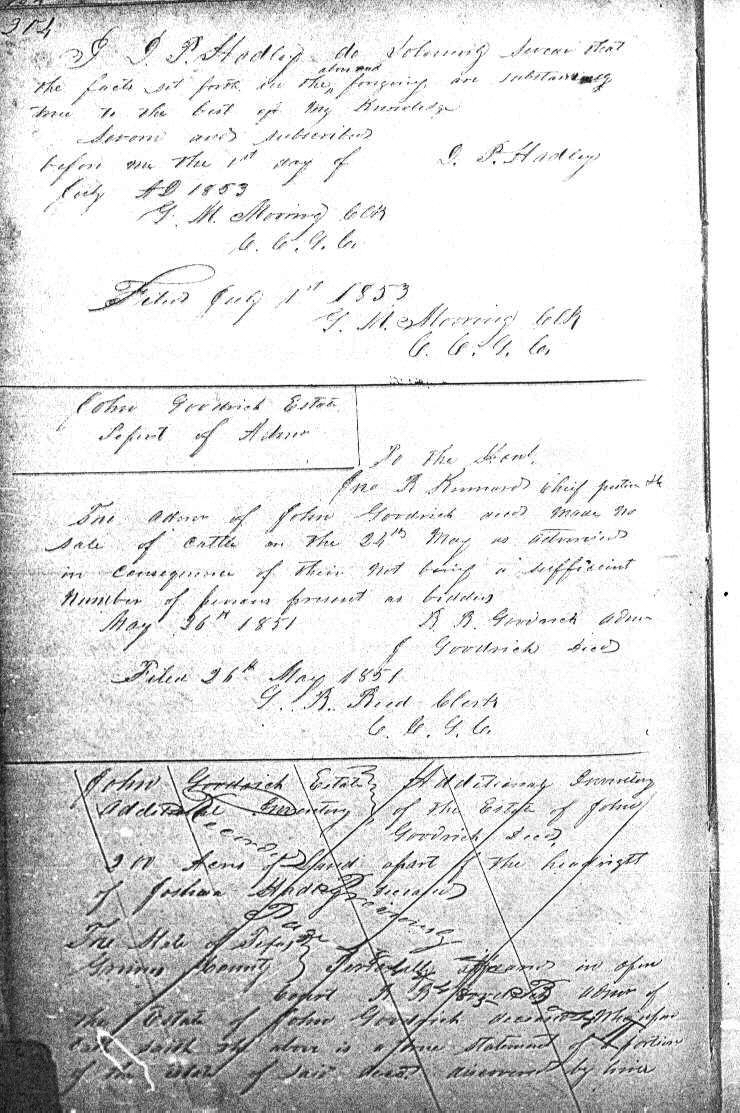 304
I D. P. Hadley do Solemny Swear that
the facts set forth in the above and forging are substancialy
true to the best of my Knowledge
Sworn and subscribed
before me the 1st day of D. P. Hadley
July AD 1853
G. M. Mooring Clk
C. C. G. Co.
Filed July 1st 1853
G. M. Mooring Clk
C. C. G. Co.
John Goodrich Estate
Report of Admr
To the Honl.
Jno R Kennard Chief justice &c
The admr of John Goodrich decd made no
sale of Cattle on the 24th May as advertised
in consequence of their not being a sufficient
number of persons present as bidders
May 26th 1851 B. B. Goodrich admr
J Goodrich Decd
Filed 26th May 1851
G. R. Reed Clerk
C. C. G. C.
John Goodrich Estate } Additional Inventory
Additional Inventory } of the Estate of John
Goodrich Decd.
200 Acres of Land apart of the headright
of Joshua Hadley deceased
The State of Texas
Grimes County } Personally appeared in open
Court B B Goodrich admr of
the Estate of John Goodrich deceased Who upon
oath saith the above is a true statement of a portion
of the estate of said decd. discovered by him